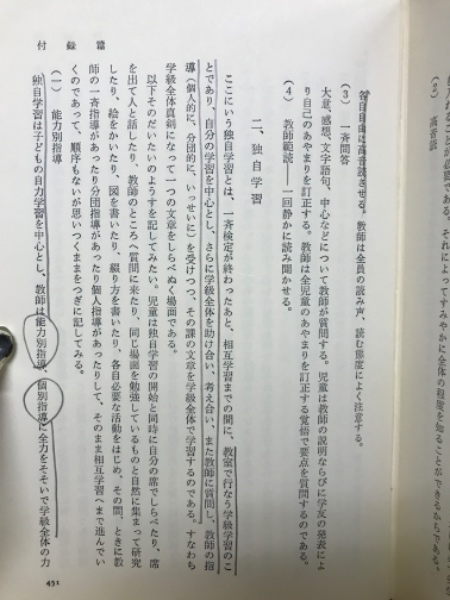 (2) 高音読
各自自由に高音読させる。教師は全員の読み声、読む態度によく注意する。
(3) 一斉問答
大意、感想、文字語句、中心などについて教師が質問する。児童は教師の説明ならびに学友の発表によ
り自己のあやまりを訂正する。教師は全児童のあやまりを訂正する覚悟で要点を質問するのである。
(4) 教師範読——一回静かに読み聞かせる。
二、独自学習
ここにいう独自学習とは、一斉検定が終わったあと、相互学習までの間に、教室で行なう学級学習のこ
とであり、自分の学習を中心とし、さらに学級全体を助け合い、考え合い、また教師に質問し、教師の指
導(個人的に、分団的に、いっせいに)を受けつつ、その課の文章を学級全体で学習するのである。すなわち
学級全体真剣になって一つの文章をしらべぬく場面である。
以下そのだいたいのようすを記してみたい。児童は独自学習の開始と同時に自分の席でしらべたり、席
を出て人と話したり、教師のところへ質問に来たり、同じ場面を勉強しているものと自然に集まって研究
したり、絵をかいたり、図を書いたり、綴り方を書いたり、各自必要な活動をはじめ、その間、ときに教
師の一斉指導があったり分団指導があったり個人指導があったりして、そのまま相互学習へまで進んでい
くのであって、順序もないが思いつくままをつぎに記してみる。
(一) 能力別指導
独自学習は子どもの自力学習を中心とし、教師は能力別指導、個別指導に全力をそそいで学級全体の力
付録篇
451